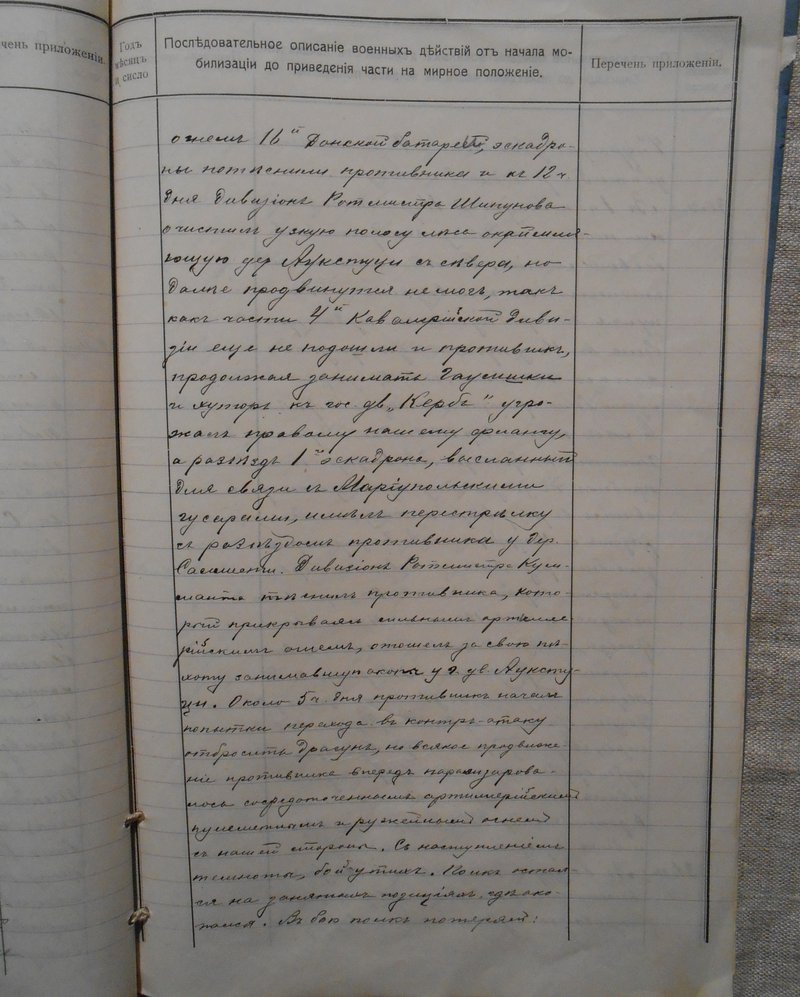 чень приложенiи.
Годъ
мѣсяцъ
и число
Послѣдовательное описанiе военныхъ дѣйствiй отъ начала мо-
билизацiи до приведенiя части на мирное положенiе.
Перечень приложенiи.
огнемъ 16й Донской батареи, эскадро-
ны потѣснили противника и къ 12 ч.
дня Дивизiонъ Ротмистра Шипунова
очистилъ узкую полосу лѣса окаймля-
ющую дер Аукстуци съ сѣвера, но
далѣе продвинутся не могъ, такъ
какъ части 4й Кавалерiйской Диви-
зiи еще не подошли и противникъ,
продолжая занимать
и хуторъ къ гос. дв. „Кербъ" угро-
жалъ правому нашему флангу,
а разъѣздъ 1го эскадрона, высланный
для связи съ Марiупольскими
гусарами, имѣлъ перестрѣлку
съ разъѣздомъ противника у дер.
Дивизiонъ Ротмистра
тѣснилъ противника, кото-
рый прикрываясь сильнымъ артилле-
рiйскимъ огнемъ, отошелъ за свою пѣ-
хоту занимавшую окопы у г. дв. Ауксту-
ци. Около 5 ч. дня противникъ началъ
попытки перехода въ контръ-атаку
отбросить драгунъ, но всякое продвиже-
нiе противника впередъ парализирова-
лось сосредоточеннымъ артиллерiйскимъ
пулеметнымъ и ружейнымъ огнемъ
съ нашей стороны. Съ наступленiемъ
темноты, бой утихъ. Полкъ остал-
ся на занятыхъ позицiяхъ, гдѣ око-
пался. Въ бою полкъ потерялъ: